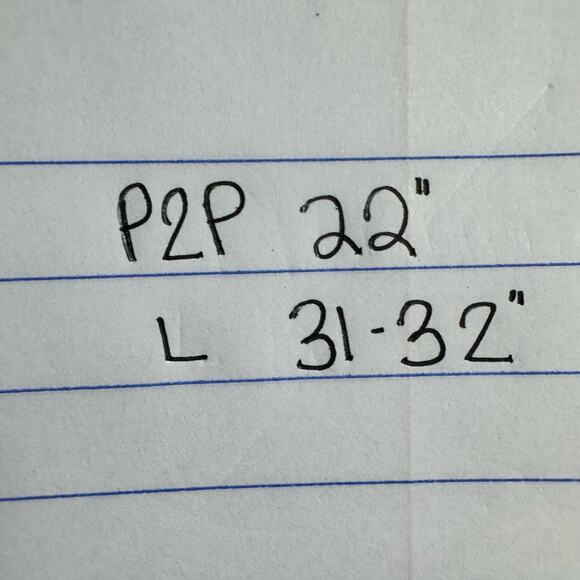 P2P 22"
L 31-32"